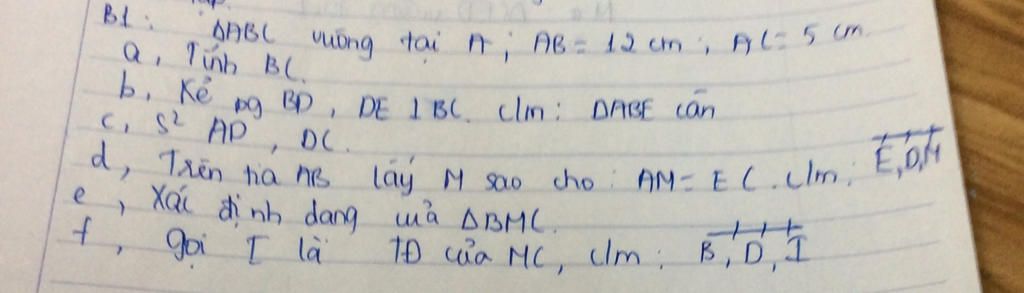 B1: ΔABC vuông tại A; AB = 12 cm; AC = 5 cm.
a, Tính BC.
b, Kẻ pg BD, DE ⊥ BC. C/m: ΔABE cân
c, S² AD, DC.
d, Trên tia AB lấy M sao cho: AM = EC. C/m: E, D, M
e, Xác định dạng của ΔBMC.
f, gọi I là TĐ của MC, c/m: B, D, I